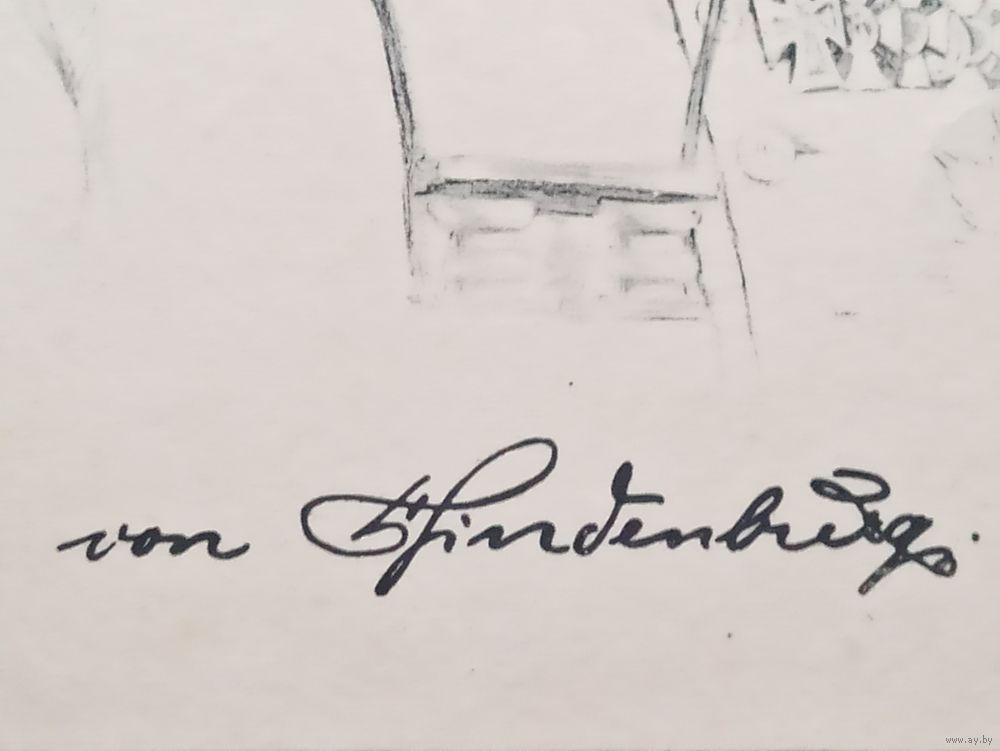 von Hindenburg.
www.ay.by